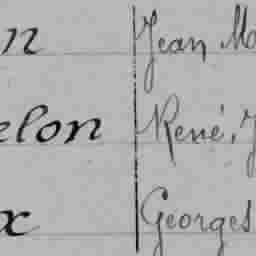 n Jean M
elon René, J
x Georges